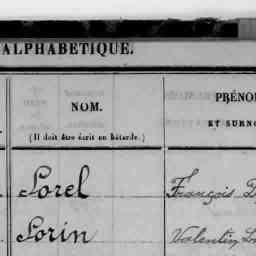 ALPHABETIQUE.
NOM.
(Il doit être écrit en bâtarde.)
PRÉNO
ET SURNO
Sorel
François
Sorin
Valentin